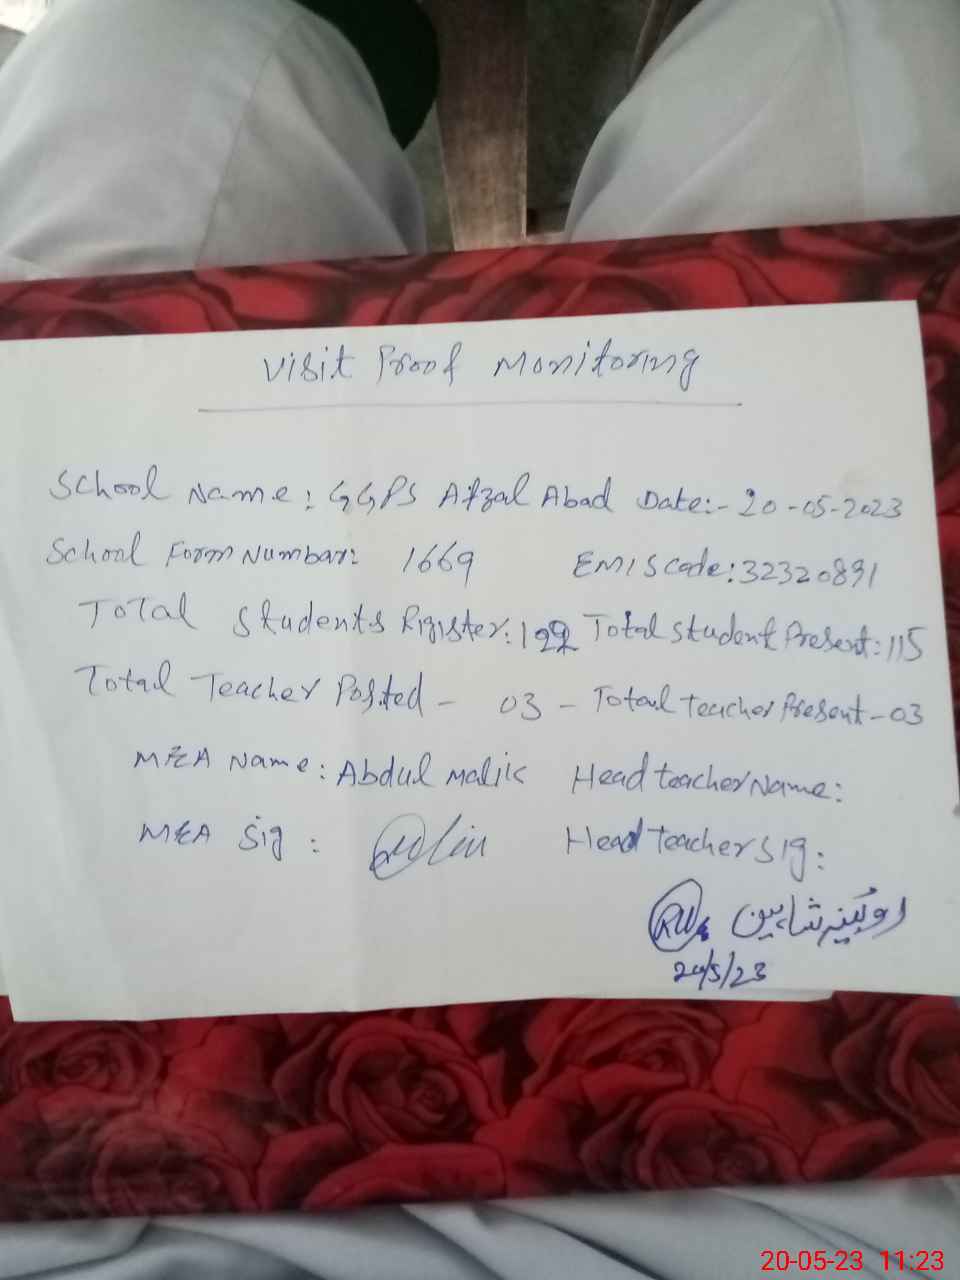 Visit Proof Monitoring
School Name: GGPS Afzal Abad Date:- 20-05-2023
School Form Number: 1669 EMIS code: 32320891
Total Students Rigister: 122 Total student Present: 115
Total Teacher Posited - 03 - Total teacher Present - 03
M&A Name: Abdul Malik Head teacher Name:
M&A Sig: Head teacher Sig:
روبینہ شاہین
20/5/23
20-05-23 11:23